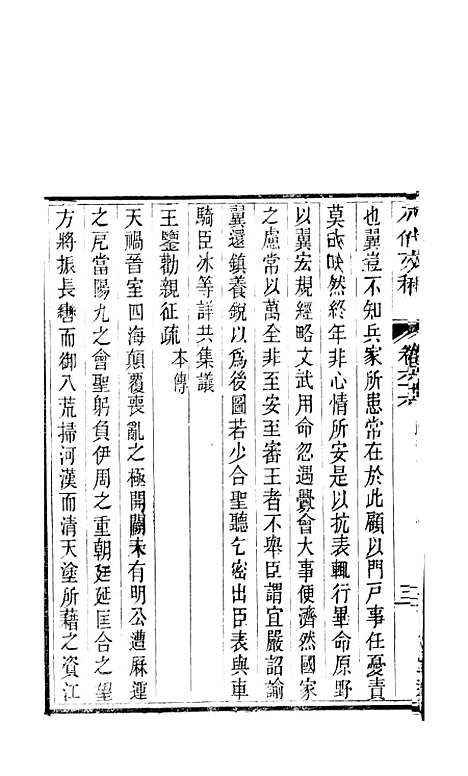 八代文粹
卷
三
也翼豈不知兵家所患常在於此顧以門戶事任憂責
莫 然終年非心情所安是以抗表輒行畢命原野
以翼宏規經略文武用命忽遇釁會大事便濟然國家
之慮常以萬全非至安至審王者不舉臣謂宜嚴詔諭
翼還鎮養銳以爲後圖若少合聖聽乞密出臣表與車
騎臣冰等詳共集議
王鑒勸親征疏本傳
天禍晉室四海顛覆喪亂之極開闢未有明公遭厤運
之戹當陽九之會聖躬負伊周之重朝廷延匡合之望
方將振長轡而御八荒掃河漢而清天塗所藉之資江